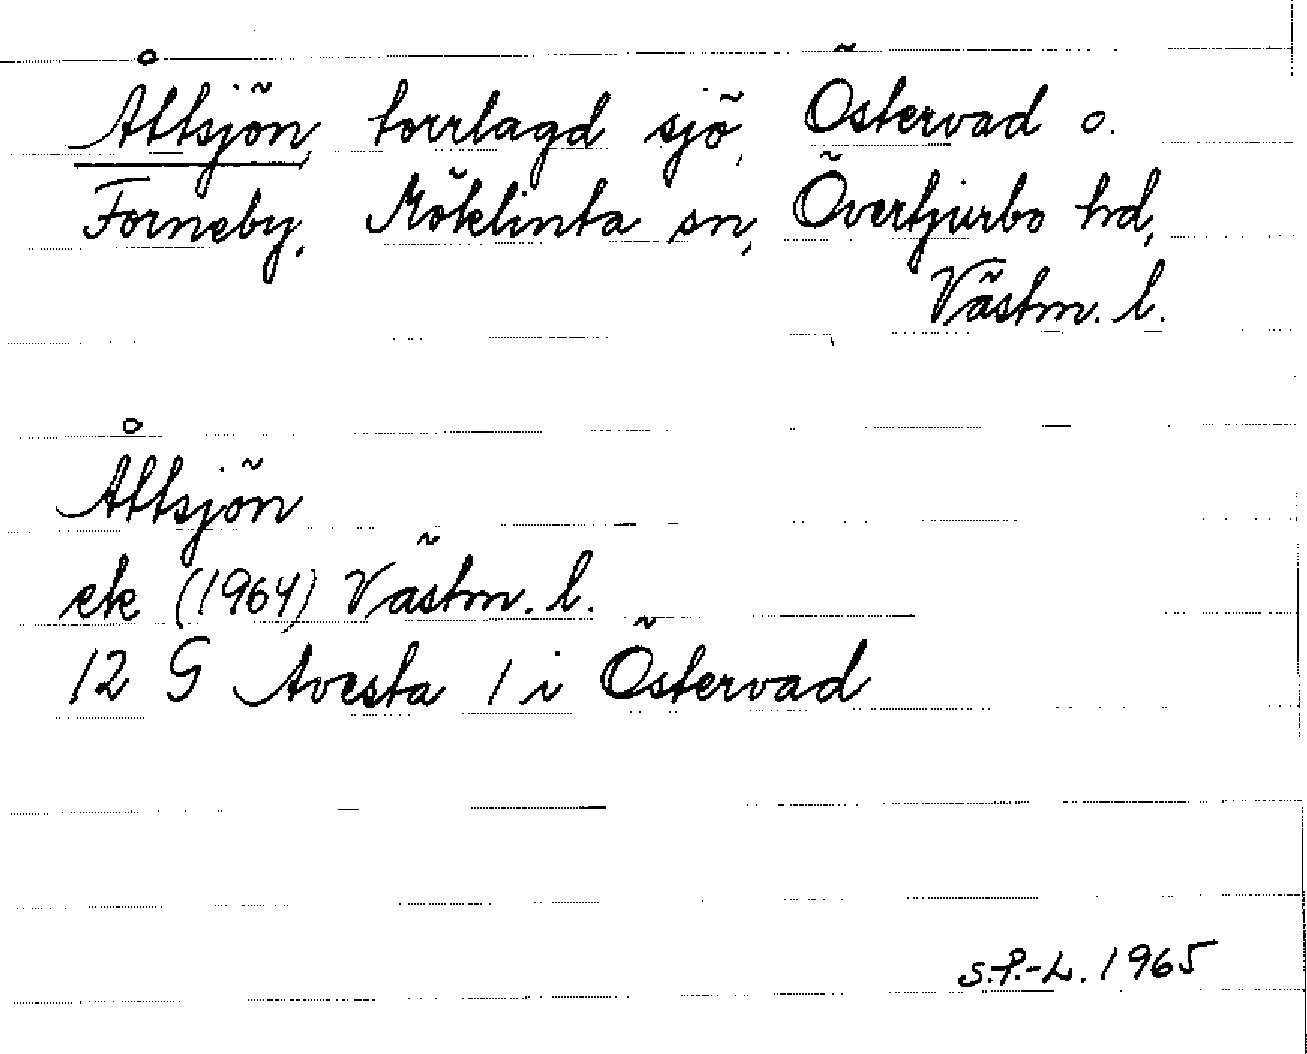 Åttsjön, torrlagd sjö, Östervad o.
Forneby, Möklinta sn, Övertjurbo hd,
Västm. l.
Åttsjön
ek (1964) Västm. l.
12 G Avesta 1 i Östervad
S.P.-L. 1965